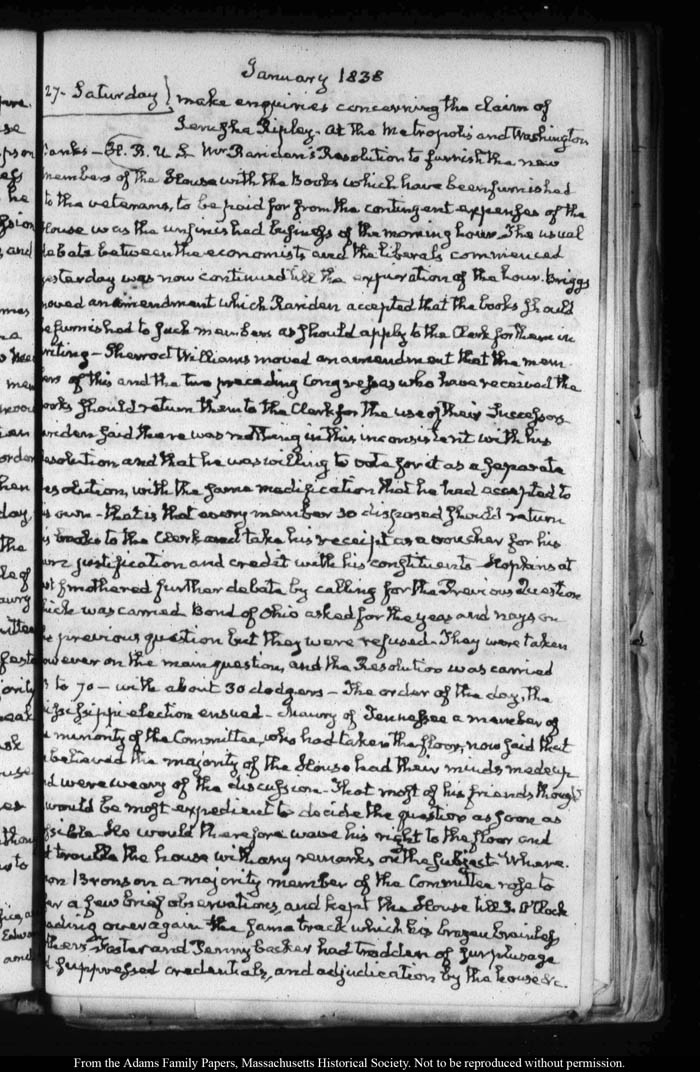 January 1838
27. Saturday } make enquiries concerning the claim of
Ripley. at the Metropolis and Washington
Banks – H. R. U. S. Mr Rariden's Resolution to furnish the new
members of the House with the Books which have been furnished
to the veterans, to be paid for from the contingent expenses of the
House was the unfinished business of the morning hour. The usual
debate between the economists and the liberals commenced
yesterday was now continued till the expiration of the hour. Briggs
moved an amendment which Rariden accepted that the books should
be furnished to such members as should apply to the Clerk for them in
writing – Sherrod Williams moved an amendment that the mem-
bers of this and the two preceding Congresses who have received the
books should return them to the Clerk for the use of their Successors.
Rariden said there was nothing in this inconsistent with his
resolution and that he was willing to vote for it as a separate
resolution, with the same modification that he had accepted to
his own – that is that every member so disposed should return
his books to the Clerk and take his receipt as a voucher for his
justification and credit with his constituents Hopkins at
last smothered further debate by calling for the Previous Question
which was carried. Bond of Ohio asked for the yeas and nays on
the previous question but they were refused. They were taken
however on the main question, and the Resolution was carried
to 70 – with about 30 dodgers – The order of the day, the
Mississippi election ensued – Maury of Tennessee a member of
the minority of the Committee, who had taken the floor, now said that
he believed the majority of the House had their minds made up
and were weary of the discussion – That most of his friends thought
it would be most expedient to decide the question as soon as
possible. He would therefore wave his right to the floor and
not trouble the house with any remarks on the subject – Where-
upon Bronson a majority member of the Committee rose to
offer a few brief observations, and kept the House till 3. O'Clock
treading over again the same track which his brazen brainless
brothers Foster and Pennybacker had trodden of surplusage
and suppressed credentials, and adjudication by the house &c.
From the Adams Family Papers, Massachusetts Historical Society. Not to be reproduced without permission.